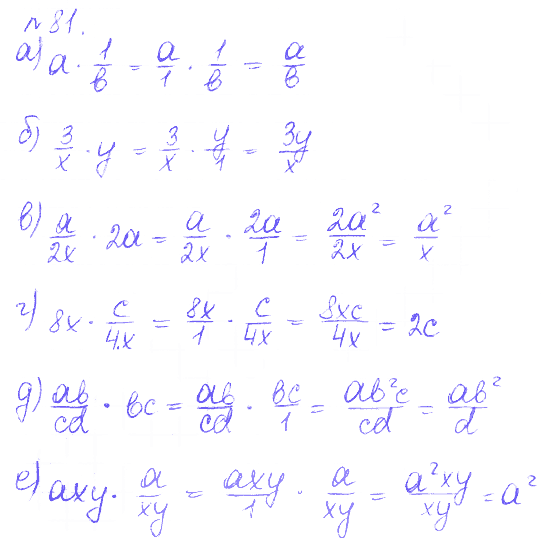 №81.
а) a · 1/b = a/1 · 1/b = a/b
б) 3/x · y = 3/x · y/1 = 3y/x
в) a/2x · 2a = a/2x · 2a/1 = 2a²/2x = a²/x
г) 8x · c/4x = 8x/1 · c/4x = 8xc/4x = 2c
д) ab/cd · bc = ab/cd · bc/1 = ab²c/cd = ab²/d
е) axy · a/xy = axy/1 · a/xy = a²xy/xy = a²